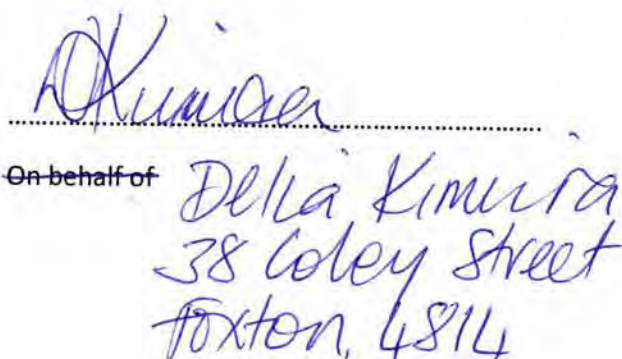 DKimura
On behalf of Delia Kimura
38 Coley Street
Foxton, 4814